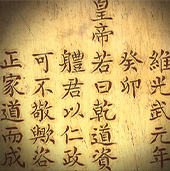 維光武元年
癸卯
皇帝若曰乾道資
體君以仁政
可不敬歟咨
正家道而成